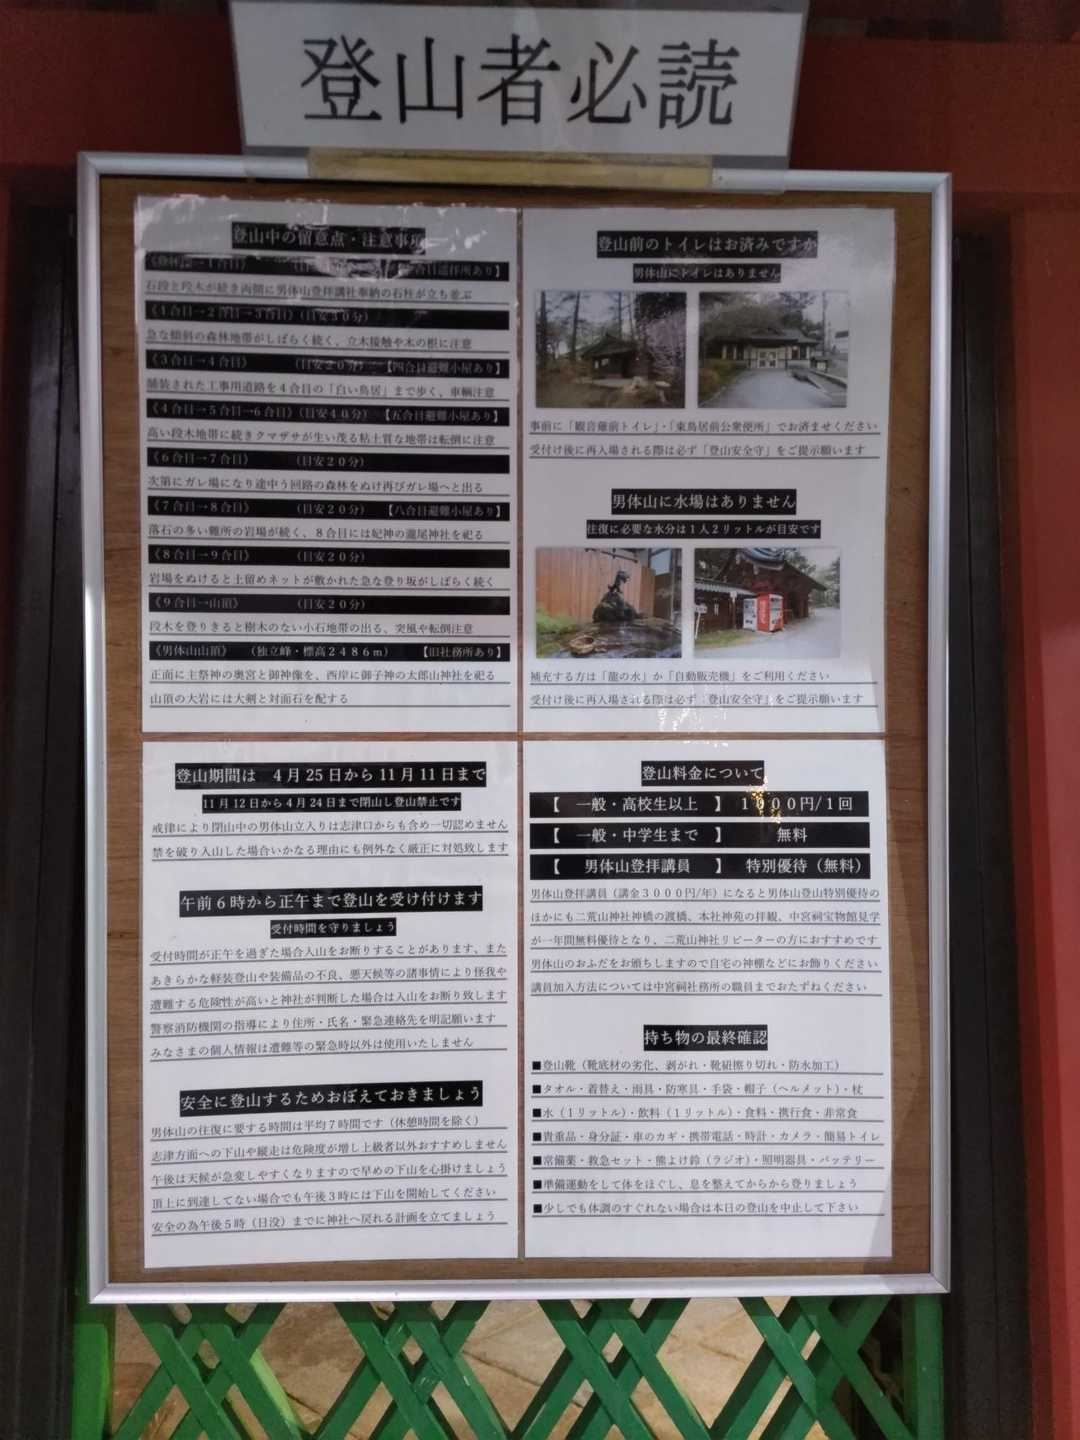 登山者必読
登山中の留意点・注意事項
石段と段木が続き両側に男体山登拝講社奉納の石柱が立ち並ぶ
《1合目→2合目→3合目》(目安30分)
急な傾斜の森林地帯がしばらく続く、立木接触や木の根に注意
《3合目→4合目》 (目安20分) 【四合目避難小屋あり】
舗装された工事用道路を4合目の「白い鳥居」まで歩く、車輌注意
《4合目→5合目→6合目》(目安40分) 【五合目避難小屋あり】
高い段木地帯に続きクマザサが生い茂る粘土質な地帯は転倒に注意
《6合目→7合目》 (目安20分)
次第にガレ場になり途中う回路の森林をぬけ再びガレ場へと出る
《7合目→8合目》 (目安20分) 【八合目避難小屋あり】
落石の多い難所の岩場が続く、8合目には妃神の瀧尾神社を祀る
《8合目→9合目》 (目安20分)
岩場をぬけると土留めネットが敷かれた急な登り坂がしばらく続く
《9合目→山頂》 (目安20分)
段木を登りきると樹木のない小石地帯の出る、突風や転倒注意
《男体山山頂》 (独立峰・標高2486m) 【旧社務所あり】
正面に主祭神の奥宮と御神像を、西岸に御子神の太郎山神社を祀る
山頂の大岩には大剣と対面石を配する
登山前のトイレはお済みですか
男体山にトイレはありません
事前に「観音薙前トイレ」・「東鳥居前公衆便所」でお済ませください
受付け後に再入場される際は必ず「登山安全守」をご提示願います
男体山に水場はありません
往復に必要な水分は1人2リットルが目安です
補充する方は「龍の水」か「自動販売機」をご利用ください
受付け後に再入場される際は必ず「登山安全守」をご提示願います
登山期間は 4月25日から11月11日まで
11月12日から4月24日まで閉山し登山禁止です
戒律により閉山中の男体山立入りは志津口からも含め一切認めません
禁を破り入山した場合いかなる理由にも例外なく厳正に対処致します
午前6時から正午まで登山を受け付けます
受付時間を守りましょう
受付時間が正午を過ぎた場合入山をお断りすることがあります、また
あきらかな軽装登山や装備品の不良、悪天候等の諸事情により怪我や
遭難する危険性が高いと神社が判断した場合は入山をお断り致します
警察消防機関の指導により住所・氏名・緊急連絡先を明記願います
みなさまの個人情報は遭難等の緊急時以外は使用いたしません
安全に登山するためおぼえておきましょう
男体山の往復に要する時間は平均7時間です(休憩時間を除く)
志津方面への下山や縦走は危険度が増し上級者以外おすすめしません
午後は天候が急変しやすくなりますので早めの下山を心掛けましょう
頂上に到達してない場合でも午後3時には下山を開始してください
安全の為午後5時(日没)までに神社へ戻れる計画を立てましょう
登山料金について
【 一般・高校生以上 】 1000円/1回
【 一般・中学生まで 】 無料
【 男体山登拝講員 】 特別優待(無料)
男体山登拝講員(講金3000円/年)になると男体山登山特別優待の
ほかにも二荒山神社神橋の渡橋、本社神苑の拝観、中宮祠宝物館見学
が一年間無料優待となり、二荒山神社リピーターの方におすすめです
男体山のおふだをお頒ちしますので自宅の神棚などにお飾りください
講員加入方法については中宮祠社務所の職員までおたずねください
持ち物の最終確認
■登山靴(靴底材の劣化、剥がれ・靴紐擦り切れ・防水加工)
■タオル・着替え・雨具・防寒具・手袋・帽子(ヘルメット)・杖
■水(1リットル)・飲料(1リットル)・食料・携行食・非常食
■貴重品・身分証・車のカギ・携帯電話・時計・カメラ・簡易トイレ
■常備薬・救急セット・熊よけ鈴(ラジオ)・照明器具・バッテリー
■準備運動をして体をほぐし、息を整えてからから登りましょう
■少しでも体調のすぐれない場合は本日の登山を中止して下さい